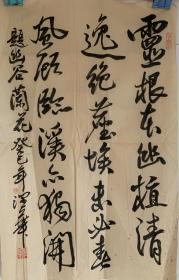 靈根本幽植清
逸絕塵埃未必春
風顧臨溪亦獨開
題幽谷蘭花癸巳年